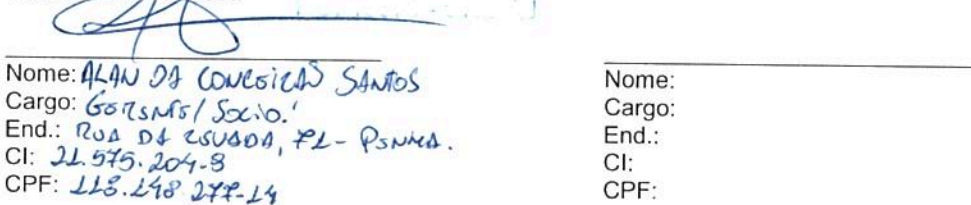 Nome: ALAN DA CONCEIÇÃO SANTOS
Cargo: GERENTE / Socio.
End.: RUA DA , 71 - PENHA.
CI: 21.575.204-8
CPF: 118.148 277-14
Nome:
Cargo:
End.:
CI:
CPF: